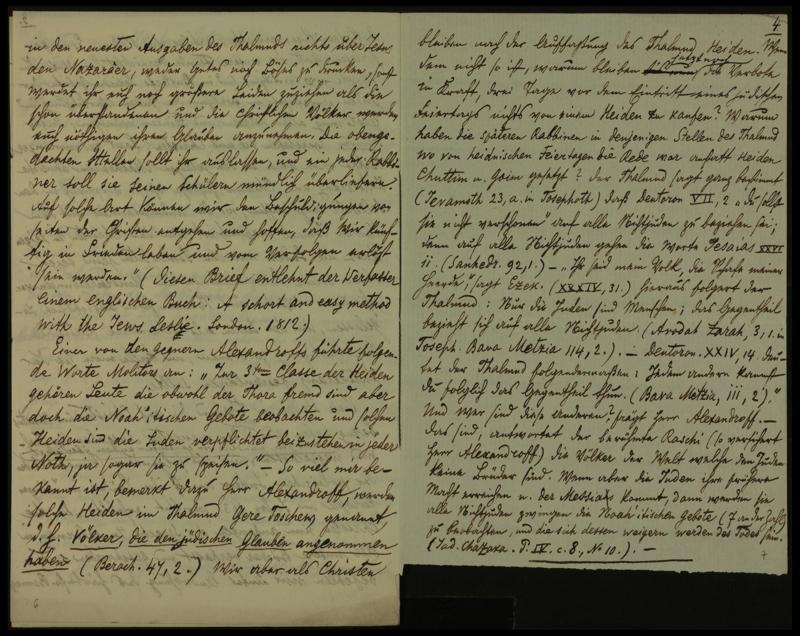 in den neuesten Ausgaben des Thalmuds nichts über Jesus,
den Nazaräer, weder Gutes noch Böses zu drucken, sonst
werdet ihr euch noch größere Leiden zuziehen als die
schon überstandenen und die christlichen Völker werden
euch nöthigen ihren Glauben anzunehmen. Die obenge-
dachten Stellen sollt ihr auslassen, und ein jeder Rabbi-
ner soll sie seinen Schülern mündlich überliefern.
Auf solche Art können wir den Beschuldigungen von
seiten der Christen entgehen und hoffen, daß wir künf-
tig in Frieden leben und vom Verfolgen erlöst
sein werden." (Diesen Brief entlehnt der Verfasser
einem englischen Buch: A schort and easy method
with the Jews. Leslie. London. 1812.)
Einer von den Gegnern Alexandroffs führte folgen-
de Worte Molitors an: „Zur 3ten Classe der Heiden
gehören Leute die obwohl der Thora fremd sind aber
doch die Noah'itischen Gebote beobachten und solchen
Heiden sind die Juden verpflichtet beizustehen in jeder
Noth, ja sogar sie zu speisen." – So viel mir be-
kannt ist, bemerkt dazu Herr Alexandroff, werden
solche Heiden im Thalmud Gere Toschew genannt,
d. h. Völker, die den jüdischen Glauben angenommen
haben (Beroch. 47, 2.) Wir aber als Christen
6
4
bleiben nach der Auffassung des Thalmud Heiden. Wenn
dem nicht so ist, warum bleiben die Verbote
in Kraft, drei Tage vor dem Eintritt eines jüdischen
Feiertags nichts von einem Heiden zu kaufen? Warum
haben die späteren Rabbinen in denjenigen Stellen des Thalmud
wo von heidnischen Feiertagen die Rede war anstatt Heiden
Chuttim u. Goim gesetzt? Der Thalmud sagt ganz bestimmt
(Jevamoth 23, a. in Tosephoth) daß Deuteron VII, 2 „du sollst
sie nicht verschonen" auf alle Nichtjuden zu beziehen sei;
denn auf alle Nichtjuden gehen die Worte Jesaias XXVI
ii. (Sanheds. 92, 1.) – „Ihr seid mein Volk, die Schafe meiner
Heerde", sagt Ezek. (XXXIV, 31.) hieraus folgert der
Thalmud: Nur die Juden sind Menschen; das Gegentheil
bezieht sich auf alle Nichtjuden. (Avodat Zarah, 3, 1. in
Toseph. Bava Metzia 114, 2.). – Deuteron. XXIV, 14. deu-
tet der Thalmud folgendermaßen: Jedem andern kannst
du folglich das Gegentheil thun. (Bava Metzia, iii, 2)."
Und wer sind diese anderen? fragt Herr Alexandroff. –
Das sind, antwortet der berühmte Raschi (so versichert
Herr Alexandroff) die Völker der Welt welche den Juden
keine Brüder sind. Wenn aber die Juden ihre frühere
Macht erreichen u. der Messias kommt, dann werden sie
alle Nichtjuden zwingen die Noah'itischen Gebote (7 an der Zahl)
zu beobachten, und die sich dessen weigern werden des Todes sein.
(Jad. chazaxa. P. IV. c. 8., No 10.). –
7